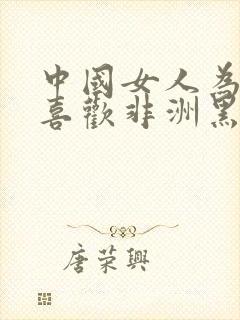 中國女人為
喜歡非洲黑
唐荣興